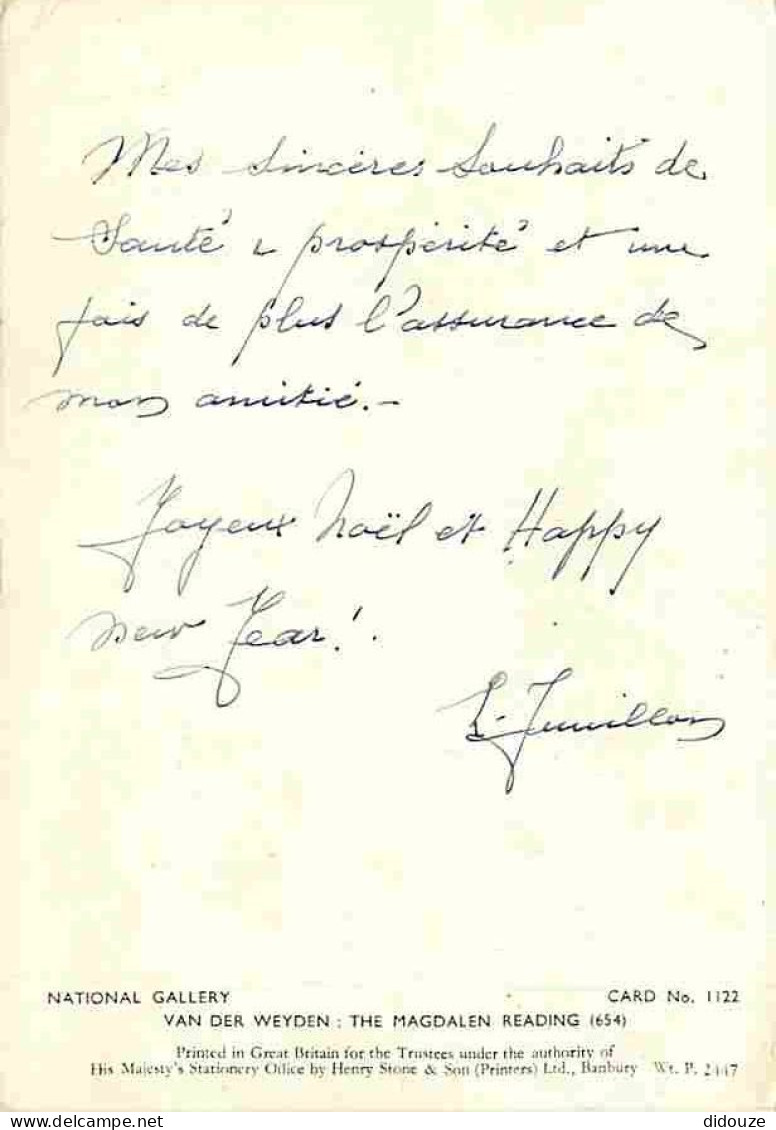 Mes sincères souhaits de
Santé & prospérité et une
fois de plus l'assurance de
mon amitié.-
Joyeux Noël et Happy
new Year!
NATIONAL GALLERY CARD No. 1122
VAN DER WEYDEN : THE MAGDALEN READING (654)
Printed in Great Britain for the Trustees under the authority of
His Majesty's Stationery Office by Henry Stone & Son (Printers) Ltd., Banbury Wt. P. 2447
didouze